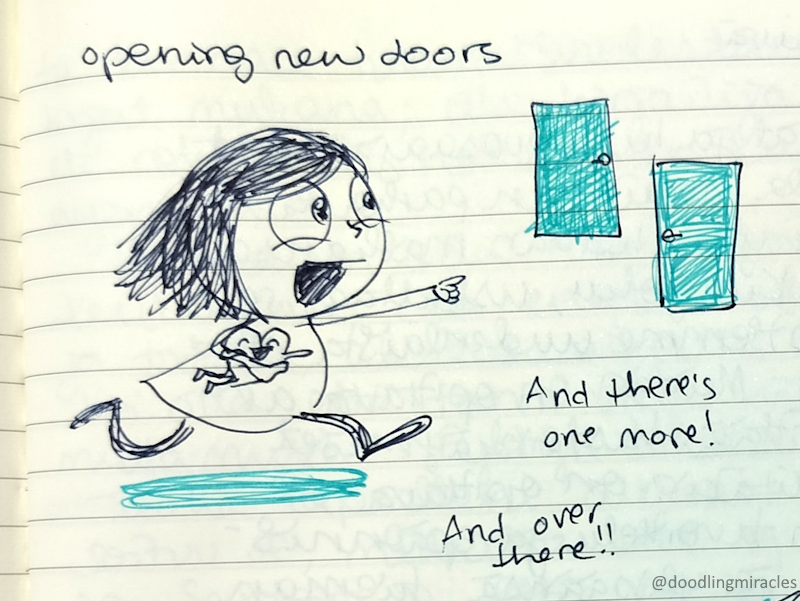 opening new doors
And there's
one more!
And over
there!!
@doodlingmiracles